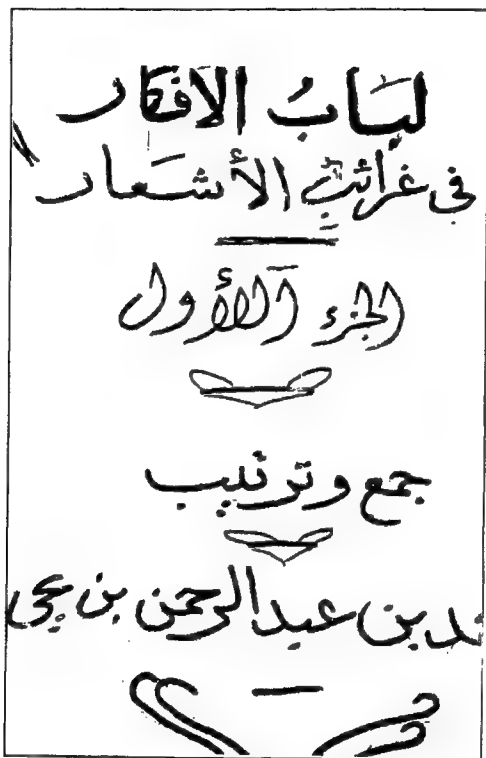 لبَابُ الأفكار
في غرائب الأشعار
الجزء الأول
جمع وترتيب
بن عبد الرحمن بن يحيى